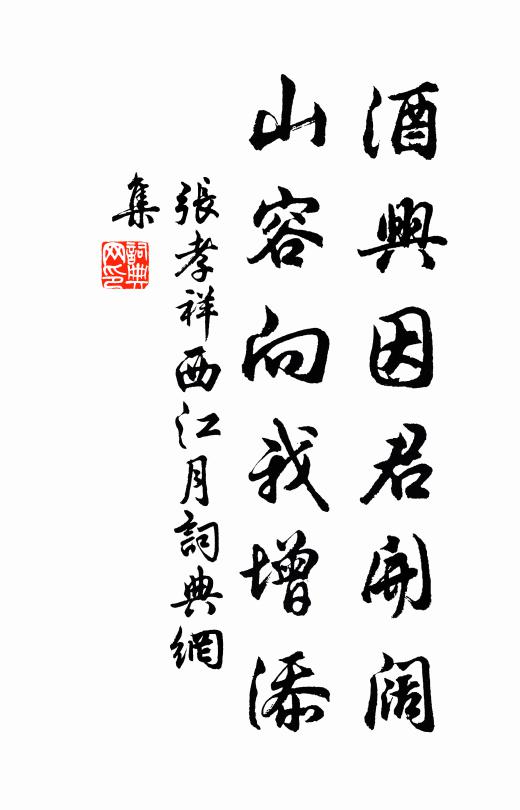 酒興因君開闊
山容向我增添
張孝祥西江月詞典網
集
詞典網印